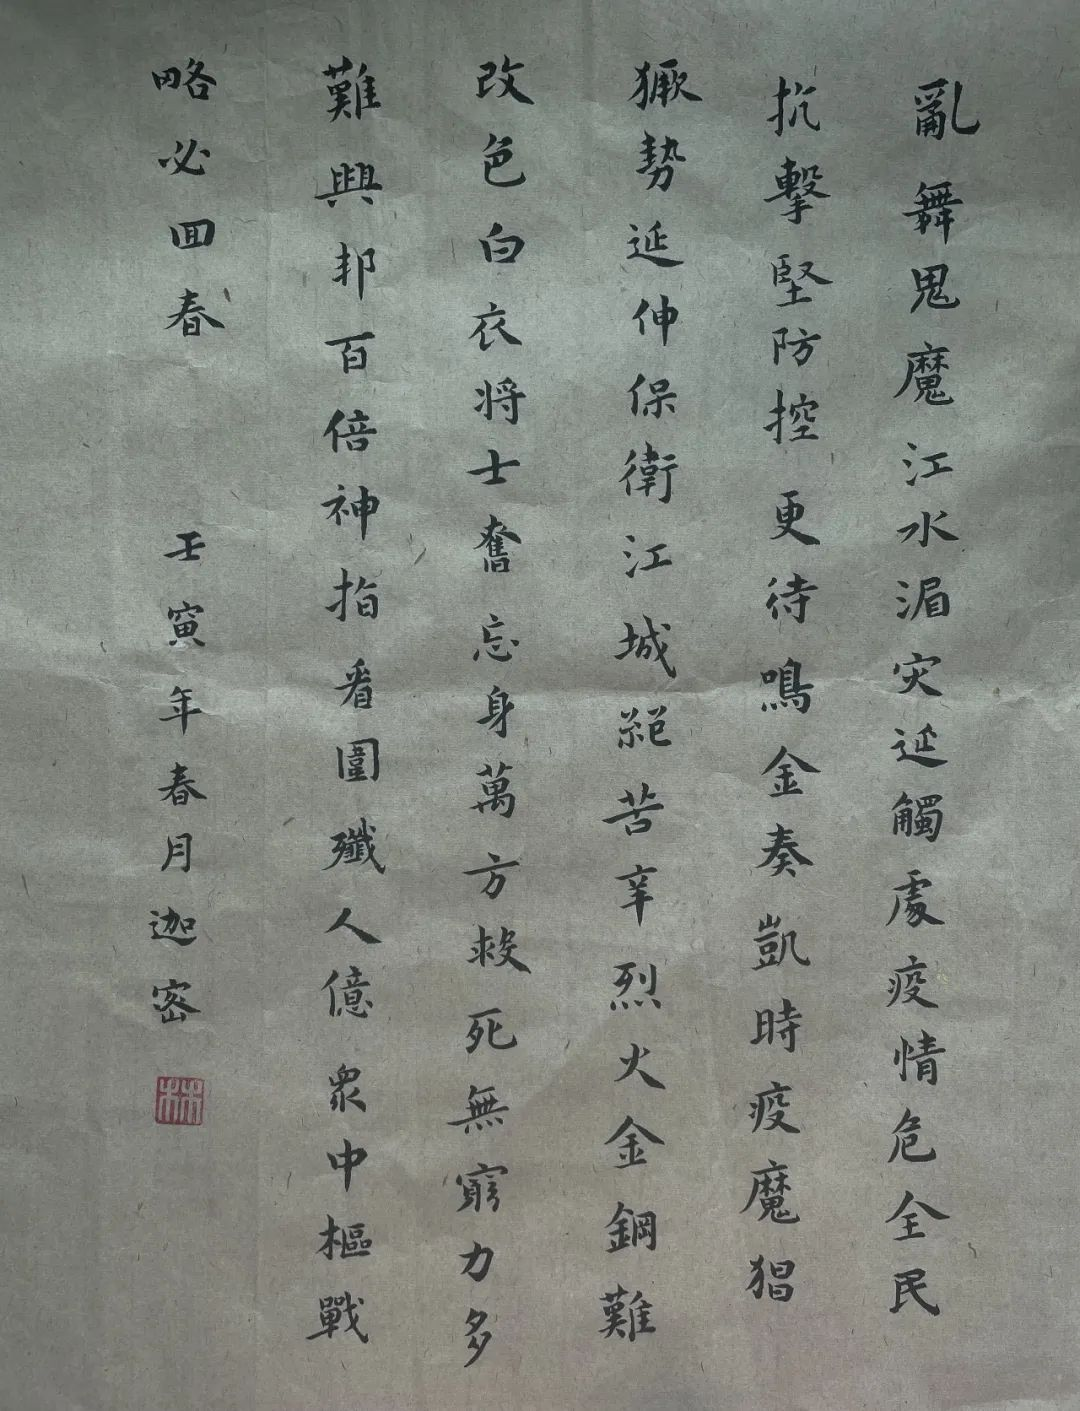 亂舞鬼魔江水湄灾延觸處疫情危全民
抗擊堅防控更待鳴金奏凱時疫魔猖
獗勢延伸保衛江城絕苦辛烈火金鋼難
改色白衣將士奮忘身萬方救死無窮力多
難興邦百倍神指看圍殲人億衆中樞戰
略必回春
壬寅年春月迦密
林